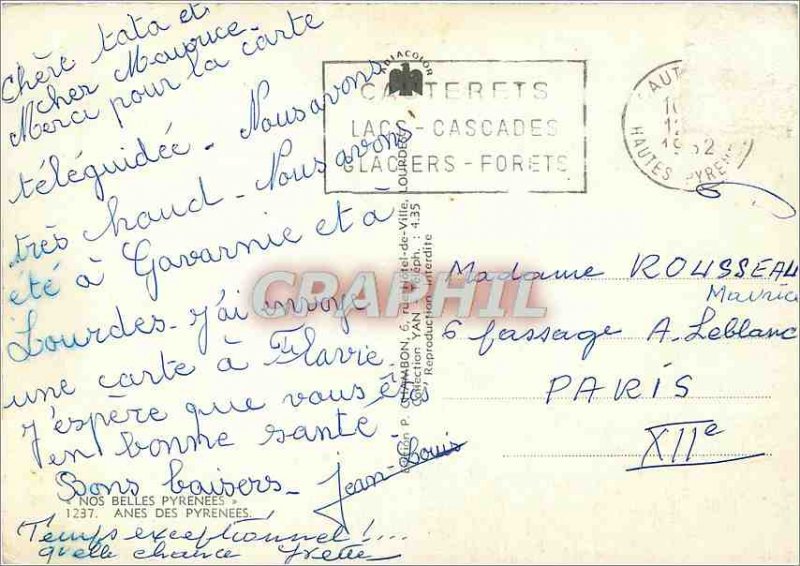 Chère tata et
cher Maurice
Merci pour la carte
téléguidée - Nous avons
très chaud - Nous avons
été à Gavarnie et à
Lourdes - J'ai envoyé
une carte à Flavie.
J'espère que vous êtes
en bonne santé
Bons baisers - Jean-Louis
« NOS BELLES PYRENEES »
1237. ANES DES PYRENEES.
Temps exceptionnel !...
quelle chance Yvette
POLACOLOR
CAUTERETS
LACS - CASCADES
GLACIERS - FORETS
HAUTES PYRENEES
Edition P. CHAMBON, 6, rue Hôtel-de-Ville, LOURDES
Collection YAN - Téléph. : 4.35
Reproduction interdite
CRAPHIL
Madame ROUSSEAU
Maurice
6 passage A. Leblanc
PARIS
XIIe